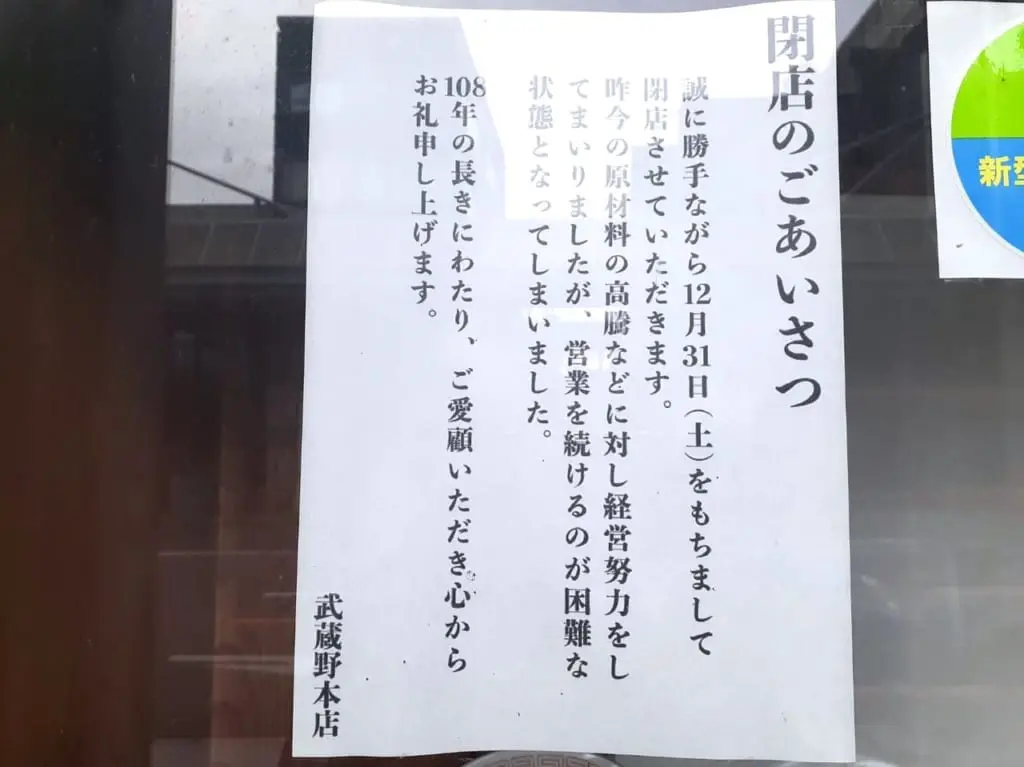 閉店のごあいさつ
誠に勝手ながら12月31日(土)をもちまして
閉店させていただきます。
昨今の原材料の高騰などに対し経営努力をし
てまいりましたが、営業を続けるのが困難な
状態となってしまいました。
108年の長きにわたり、ご愛顧いただき心から
お礼申し上げます。
武蔵野本店
新型